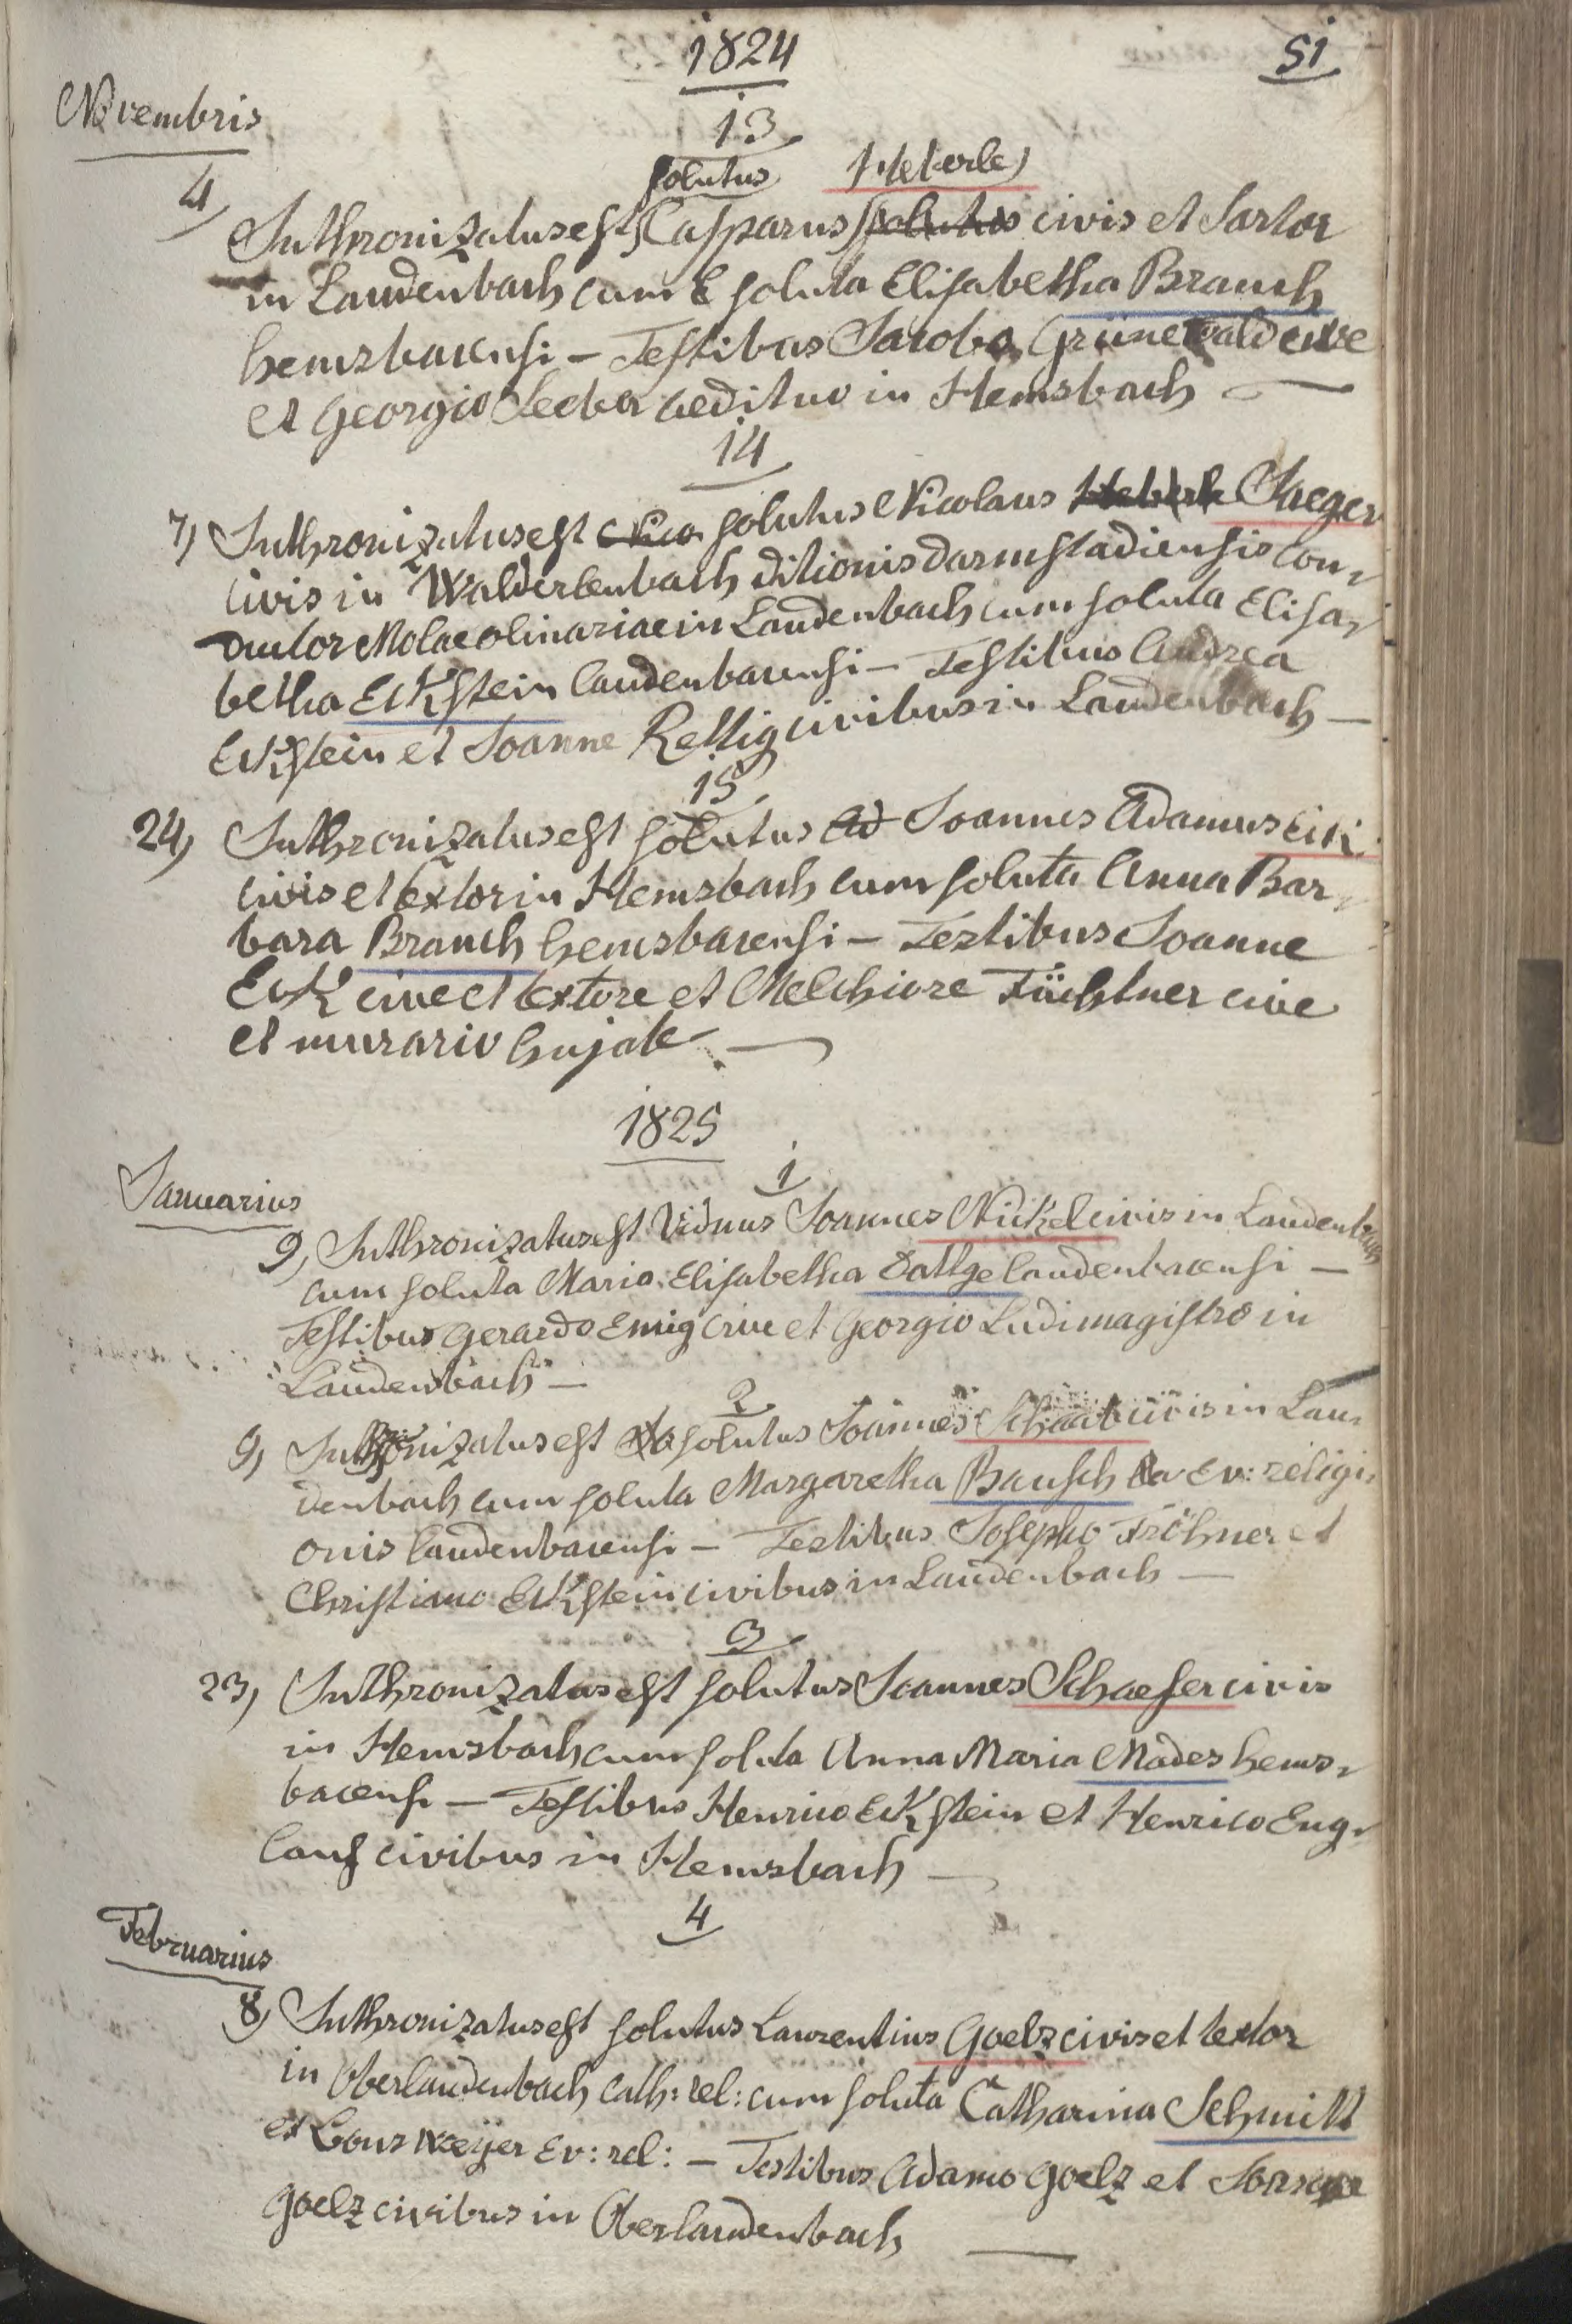 1824
51
Novembris
13
solutus Heberle
4) Inthronizatus est Casparus solutus civis et Sartor
in Laudenbach cum E soluta Elisabetha Brauch
hemsbacensi – Testibus Jacobo Grünewald cive
et Georgio Seeber aedituo in Hemsbach –
14
7) Inthronizatus est Nico solutus Nicolaus Heberle Jaeger
civis in Walderlenbach ditionis darmstadiensis con-
ductor Molae olinariae in Laudenbach cum soluta Elisa-
betha Eckstein laudenbacensi – Testibus Andrea
Eckstein et Joanne Rettig civibus in Laudenbach –
15
24) Inthronizatus est solutus Ad Joannes Adamus Eck
civis et textor in Hemsbach cum soluta Anna Bar-
bara Brauch hemsbacensi – Testibus Joanne
Eck cive et textore et Melchiore Füchtner cive
et murario hujate –
1825
Januarius
1
9) Inthronizatus est Viduus Joannes Nickel civis in Laudenbach
cum soluta Maria Elisabetha Dattge laudenbacensi –
Testibus Gerardo Emig cive et Georgio Ludimagistro in
Laudenbach –
2
9) Inthronizatus est solutus Joannes Schaab civis in Lau-
denbach cum soluta Margaretha Bausch Ev: religi-
onis laudenbacensi – Testibus Josepho Fröhner et
Christiano Eckstein civibus in Laudenbach –
3
23) Inthronizatus est solutus Joannes Schaefer civis
in Hemsbach cum soluta Anna Maria Mades hems-
bacensi – Testibus Henrico Eckstein et Henrico Eng-
lauf civibus in Hemsbach –
Februarius
4
8) Inthronizatus est solutus Laurentius Goelz civis et textor
in Oberlaudenbach cath: rel: cum soluta Catharina Schmitt
ex Bonsweyer Ev: rel: – Testibus Adamo Goelz et
Goelz civibus in Oberlaudenbach –